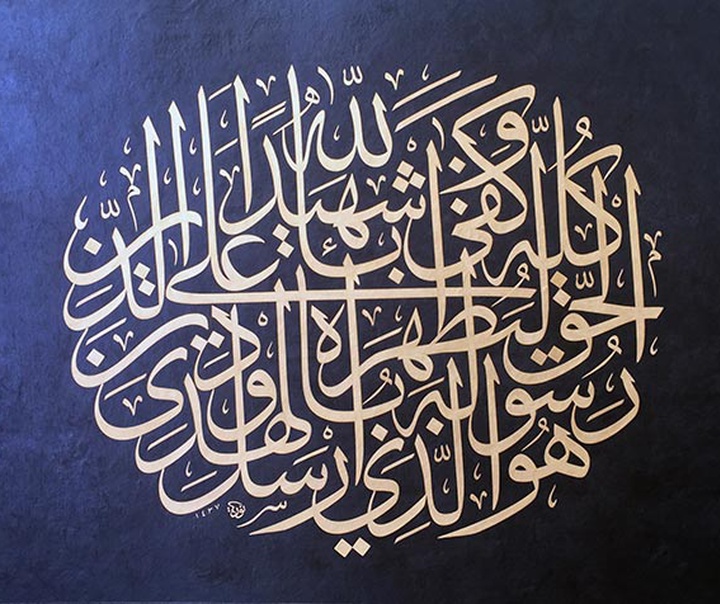 هُوَ الَّذِي اَرْسَلَ
رَسُولَهُ بِالْهُدَى وَدِينِ
الْحَقِّ لِيُظْهِرَهُ عَلَى الدِّينِ
كُلِّهِ وَكَفَى بِاللّٰهِ شَهِيدًا
١٤٣٧